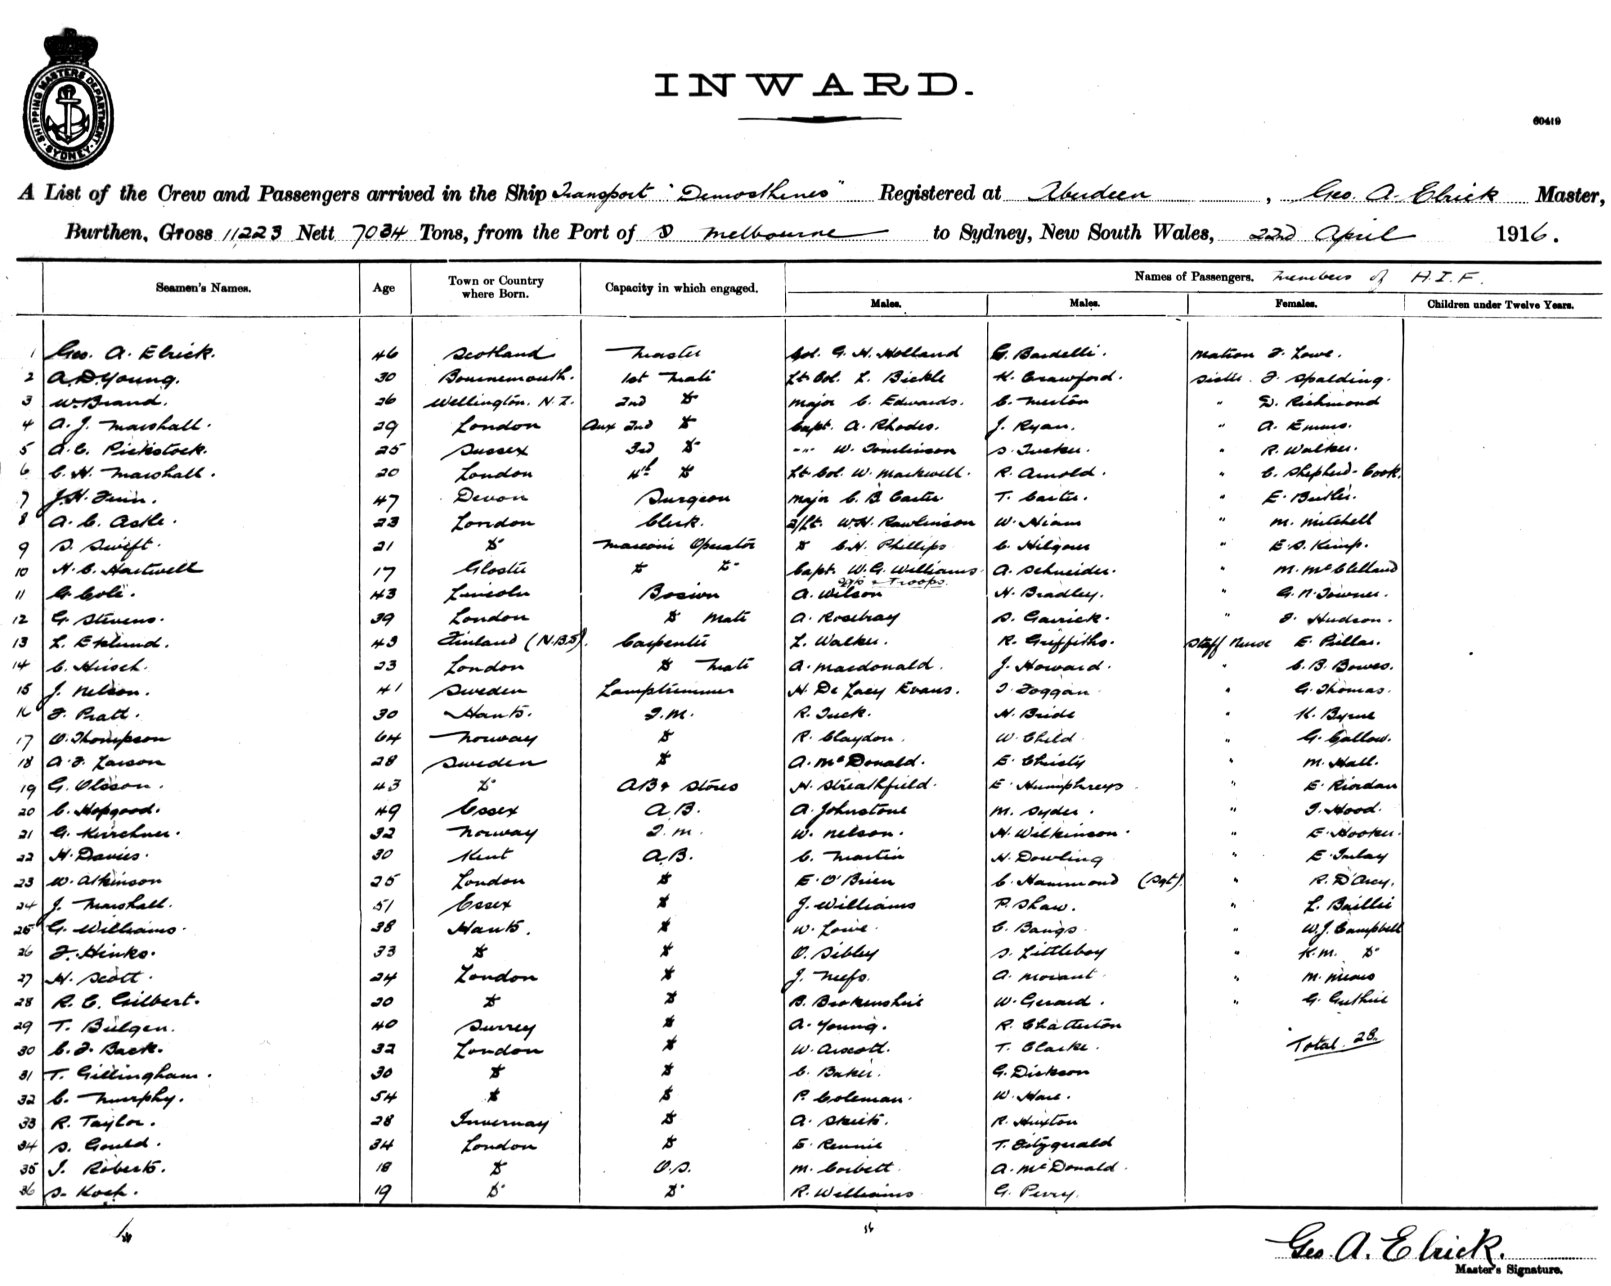 SHIPPING MASTERS DEPARTMENT SYDNEY
INWARD.
60419
A List of the Crew and Passengers arrived in the Ship Transport "Demosthenes" Registered at Aberdeen, Geo. A. Elrick Master,
Burthen, Gross 11,223 Nett 7034 Tons, from the Port of Melbourne to Sydney, New South Wales, 22d April 1916.
Names of Passengers. members of A.I.F.
Seamen's Names. Age Town or Country where Born. Capacity in which engaged. Males. Males. Females. Children under Twelve Years.
1 Geo. A. Elrick. 46 Scotland Master Col. G. H. Holland G. Bardelli. Matron F. Lowe.
2 A. D. Young. 30 Bournemouth. 1st Mate Lt Col. L. Bickle K. Crawford. Sister F. Spalding.
3 W. Brand. 26 Wellington. N.Z. 2nd Do Major C. Edwards. C. Merton " D. Richmond
4 A. J. Marshall. 29 London Aux 2nd Do Capt. A. Rhodes. J. Ryan. " A. Emms.
5 A. C. Pickstock. 25 Sussex 3rd Do " W. Tomlinson S. Tucker. " R. Walker.
6 C. H. Marshall. 20 London 4th Do Lt Col. W. Markwell. R. Arnold. " C. Shepherd-Cook
7 J. H. Finn. 47 Devon Surgeon Major C. B. Carter T. Carter. " E. Butler.
8 A. C. Astle. 23 London Clerk. 2/Lt. W. H. Rawlinson W. Hiam " M. Mitchell
9 S. Swift. 21 Do Marconi Operator Do C. H. Phillips C. Hilgner " E. S. Kemp.
10 H. C. Hartwell 17 Gloster Do Do Capt. W. G. Williams A. Schneider. " M. McClelland
Troops.
11 G. Cole. 43 Lincoln Bosun A. Wilson H. Bradley. " G. N. Towner.
12 G. Stevens. 39 London Do Mate A. Rosebray S. Garrick. " F. Hudson.
13 L. Eklund. 43 Finland (N.B.S). Carpenter L. Walker. R. Griffiths. Staff Nurse E. Pillar.
14 C. Hirsch. 23 London Do Mate A. Macdonald. J. Howard. " C. B. Bowes.
15 J. Nelson. 41 Sweden Lamptrimmer H. De Lacy Evans. J. Foggan " G. Thomas.
16 F. Pratt. 30 Hants. Q.M. R. Tuck. H. Bride " K. Byrne
17 O. Thompson 64 Norway Do R. Claydon. W. Child " G. Callow.
18 A. F. Larson 28 Sweden Do A. McDonald. E. Christy " M. Hall.
19 G. Olsson. 43 Do AB & Stores H. Streathfield. E. Humphreys " E. Riordan
20 C. Hopgood. 49 Essex A.B. A. Johnstone M. Syder. " J. Hood.
21 G. Kirschner. 32 Norway Q.M. W. Nelson. H. Wilkinson. " E. Hooker.
22 H. Davies. 30 Kent A.B. C. Martin H. Dowling " E. Imlay
23 W. Atkinson 25 London Do E. O'Brien C. Hammond (Sgt). " R. D'Arcy.
24 J. Marshall. 51 Essex Do J. Williams P. Shaw. " L. Baillie
25 G. Williams. 38 Hants. Do W. Lowe. C. Bangs " W. J. Campbell
26 F. Hinks. 33 Do Do O. Sibley S. Littleboy " K. M. Do
27 H. Scott. 24 London Do J. A. Morant "
28 R. C. Gilbert. 20 Do Do B. Brokenshire W. Gerard. " G. Guthrie
29 T. Bulgen. 40 Surrey Do A. Young. R. Chatterton
30 C. F. Back. 32 London Do W. Arscott. T. Clarke. Total 28.
31 T. Gillingham. 30 Do Do C. Baker. G. Dickson
32 C. Murphy. 54 Do Do P. Coleman. W. Hare.
33 R. Taylor. 28 Invernay Do A. R. Huxton
34 S. Gould. 34 London Do E. Rennie T. Fitzgerald
35 J. Roberts. 18 Do O.S. M. Corbett A. McDonald.
36 S. Koch. 19 Do Do R. Williams G. Perry.
Geo. A. Elrick.
Master's Signature.